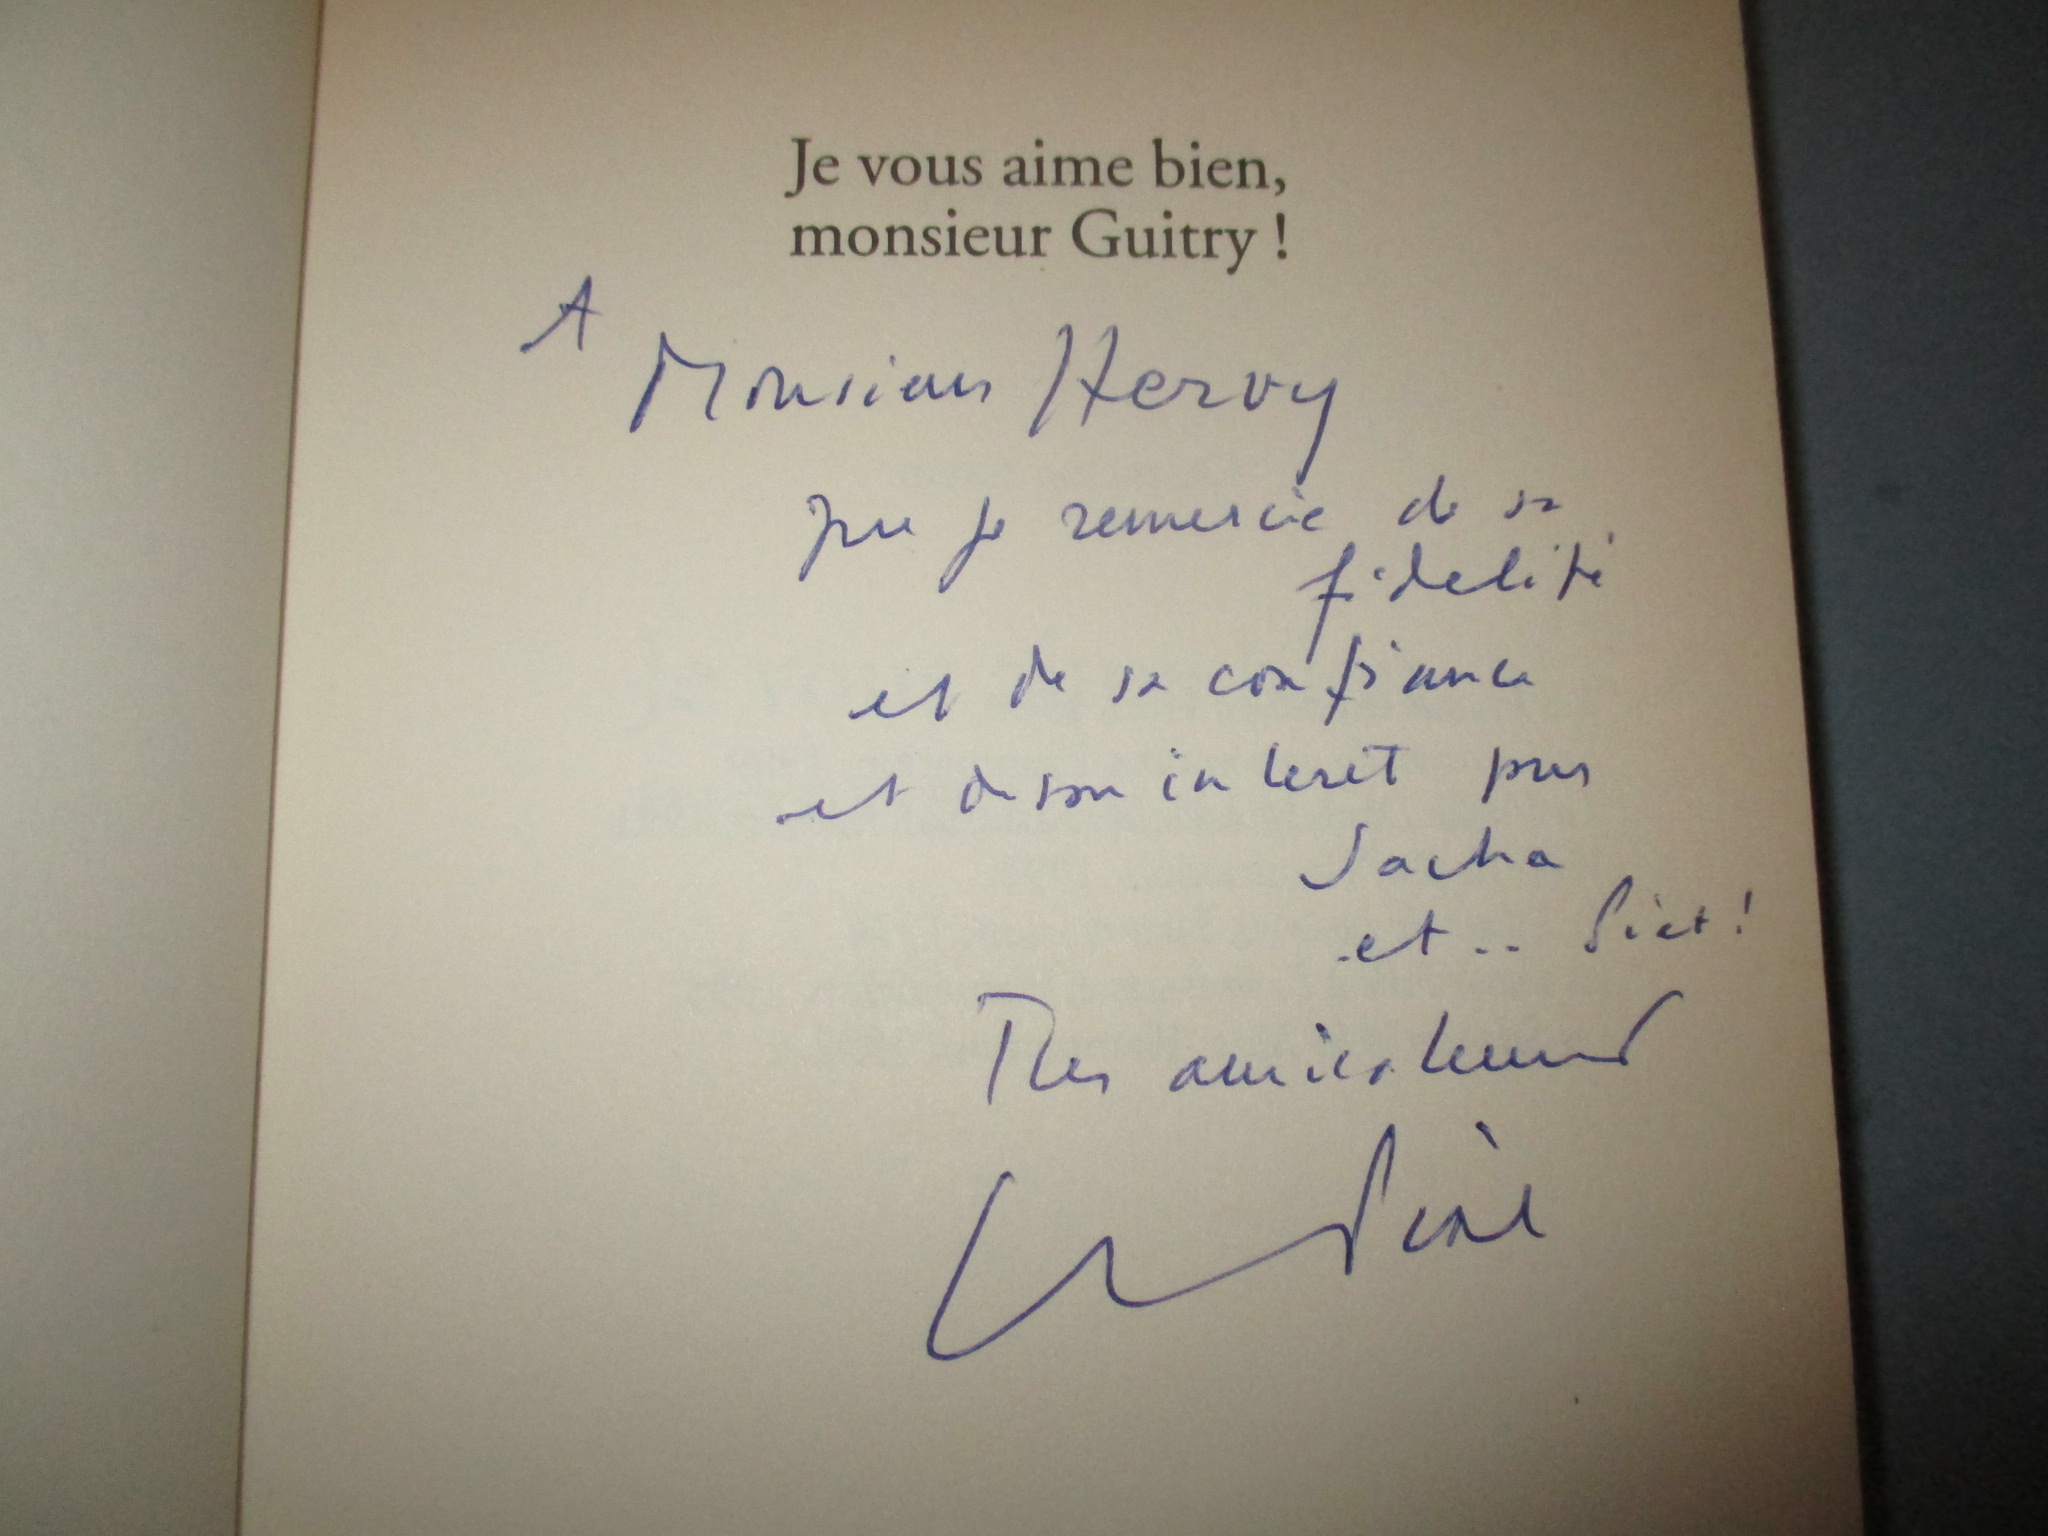 Je vous aime bien,
monsieur Guitry !
A
Monsieur Hervy
que je remercie de sa
fidelité
et de sa confiance
et de son interêt pour
Sacha
et .. Piet !
Tres amicalement